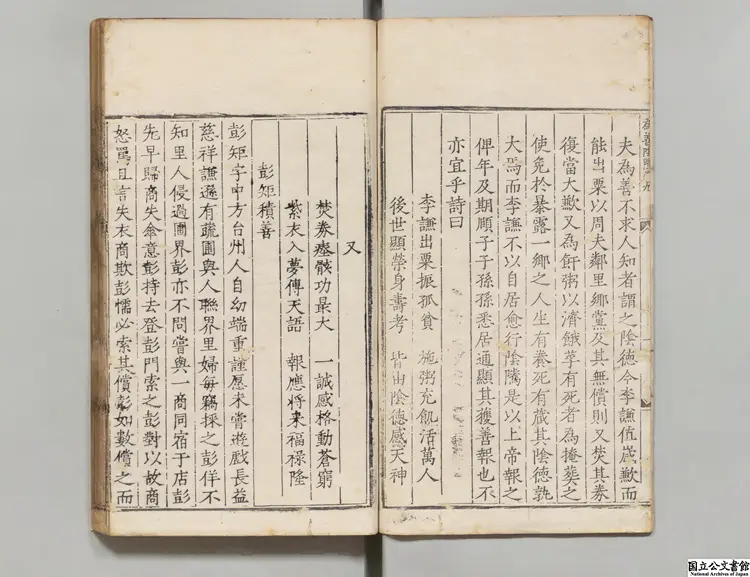 夫為善不求人知者謂之陰德今李謙值歲歉而
能出粟以周夫鄰里鄉黨及其無償則又焚其券
復當大歉又為飦粥以濟餓莩有死者為掩葬之
使免於暴露一鄉之人生有養死有葬其陰德孰
大焉而李謙不以自居愈行陰隲是以上帝報之
俾年及期順子子孫孫悉居通顯其獲善報也不
亦宜乎詩曰
李謙出粟振孤貧 施粥充飢活萬人
後世顯榮身壽考 皆由陰德感天神
又
焚券瘞骸功最大 一誠感格動蒼穹
紫衣入夢傳天語 報應将来福祿隆
彭矩積善
彭矩字中方台州人自幼端重謹愿未嘗遊戲長益
慈祥謙遜有蔬圃與人聯界里婦每竊採之彭佯不
知里人侵過圃界彭亦不問嘗與一商同宿于店彭
先早歸商失衾意彭持去登彭門索之彭對以故商
怒罵且言失衣商欺彭懦必索其償彭如數償之而
国立公文書館
National Archives of Japan